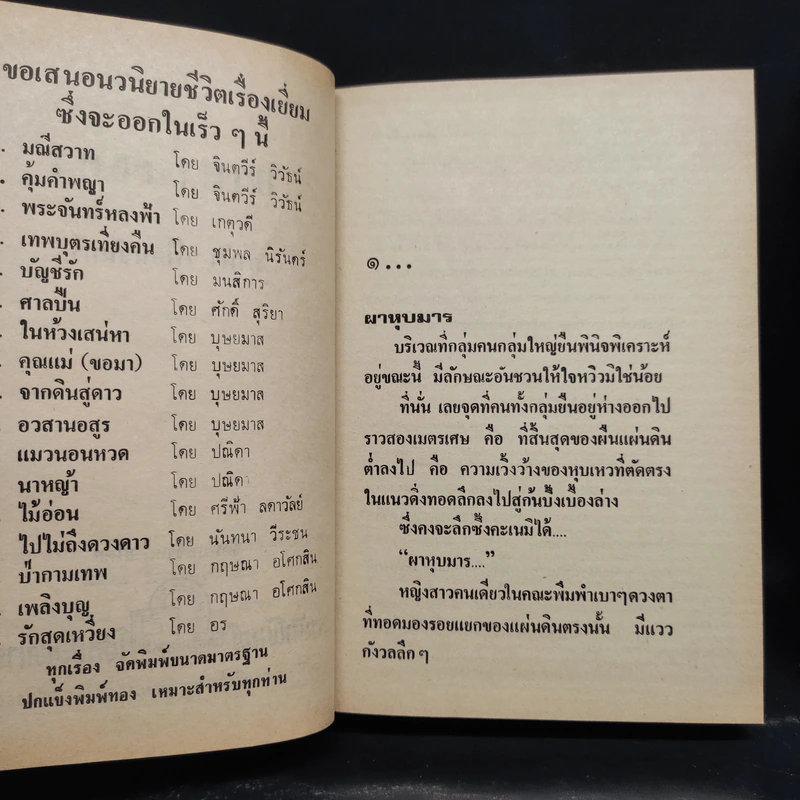 ขอเสนอนวนิยายชีวิตเรื่องเยี่ยม
ซึ่งจะออกในเร็ว ๆ นี้
. มณีสวาท โดย จินตวีร์ วิวัธน์
. คุ้มคำพญา โดย จินตวีร์ วิวัธน์
. พระจันทร์หลงฟ้า โดย เกตุวดี
. เทพบุตรเที่ยงคืน โดย ชุมพล นิรันดร์
. บัญชีรัก โดย มนสิการ
. ศาลปืน โดย ศักดิ์ สุริยา
. ในห้วงเสน่หา โดย บุษยมาส
. คุณแม่ (ขอมา) โดย บุษยมาส
. จากดินสู่ดาว โดย บุษยมาส
. อวสานอสูร โดย บุษยมาส
แมวนอนหวด โดย ปณิดา
นาหญ้า โดย ปณิดา
. ไม้อ่อน โดย ศรีฟ้า ลดาวัลย์
ไปไม่ถึงดวงดาว โดย นันทนา วีระชน
ป่ากามเทพ โดย กฤษณา อโศกสิน
. เพลิงบุญ โดย กฤษณา อโศกสิน
. รักสุดเหวี่ยง โดย อร
ทุกเรื่อง จัดพิมพ์ขนาดมาตรฐาน
ปกแข็งพิมพ์ทอง เหมาะสำหรับทุกท่าน
๑...
ผาหุบมาร
บริเวณที่กลุ่มคนกลุ่มใหญ่ยืนพินิจพิเคราะห์
อยู่ขณะนี้ มีลักษณะอันชวนให้ใจหวิวมิใช่น้อย
ที่นั่น เลยจุดที่คนทั้งกลุ่มยืนอยู่ห่างออกไป
ราวสองเมตรเศษ คือ ที่สิ้นสุดของผืนแผ่นดิน
ต่ำลงไป คือ ความเวิ้งว้างของหุบเหวที่ตัดตรง
ในแนวดิ่งทอดลึกลงไปสู่ก้นบึ้งเบื้องล่าง
ซึ่งคงจะลึกซึ้งคะเนมิได้....
“ผาหุบมาร....”
หญิงสาวคนเดียวในคณะพึมพำเบาๆดวงตา
ที่ทอดมองรอยแยกของแผ่นดินตรงนั้น มีแวว
กังวลลึกๆ